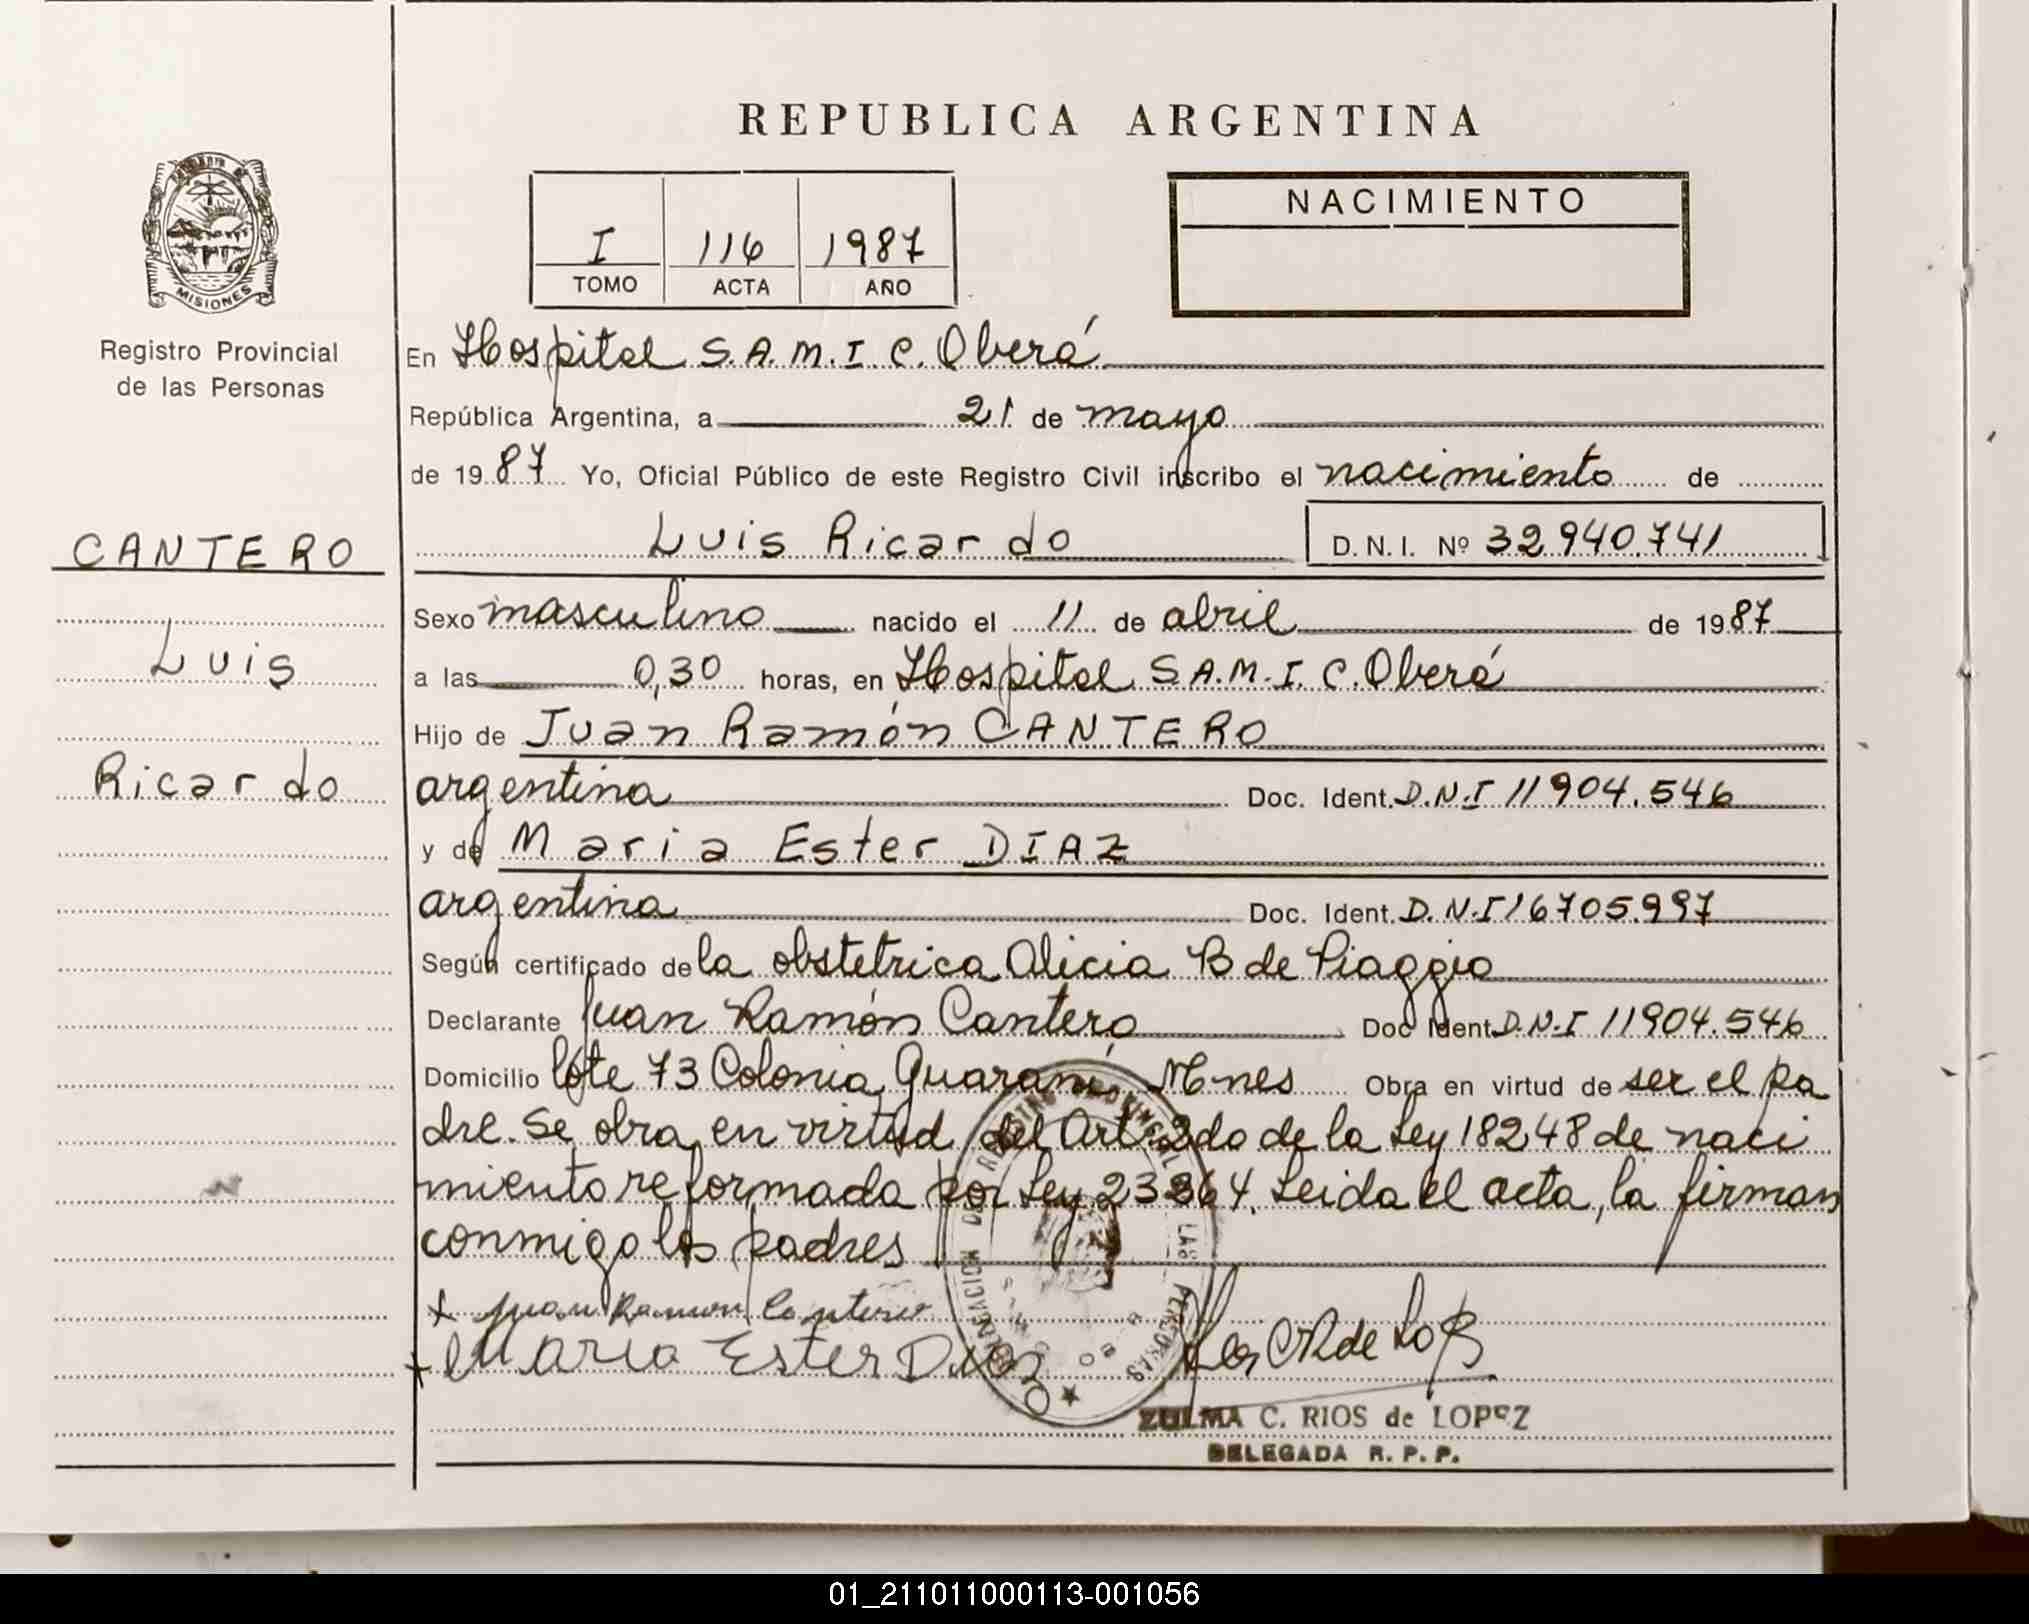 REPUBLICA ARGENTINA
MISIONES
Registro Provincial
de las Personas
I 116 1987
TOMO ACTA AÑO
NACIMIENTO
En Hospital S.A.M.I.C. Oberá
República Argentina, a 21 de mayo
de 1987 Yo, Oficial Público de este Registro Civil inscribo el nacimiento de
CANTERO
Luis Ricardo D.N.I. Nº 32940.741
Sexo masculino nacido el 11 de abril de 1987
Luis
a las 0,30 horas, en Hospital S.A.M.I.C. Oberá
Hijo de Juan Ramón CANTERO
Ricardo
argentina Doc. Ident. D.N.I 11904.546
y de Maria Ester DIAZ
argentina Doc. Ident. D.N.I 16705.997
Según certificado de la obstetrica Alicia B de Piaggio
Declarante Juan Ramón Cantero Doc Ident D.N.I 11904.546
Domicilio lote 73 Colonia Guaraní Mnes Obra en virtud de ser el pa
dre. Se obra en virtud del Art 2do de la Ley 18248 de naci
miento reformada por Ley 23264. Leida el acta, la firman
conmigo los padres
x Juan Ramon Cantero
x Maria Ester Diaz
ZULMA C. RIOS de LOPEZ
DELEGADA R. P. P.
01_211011000113-001056